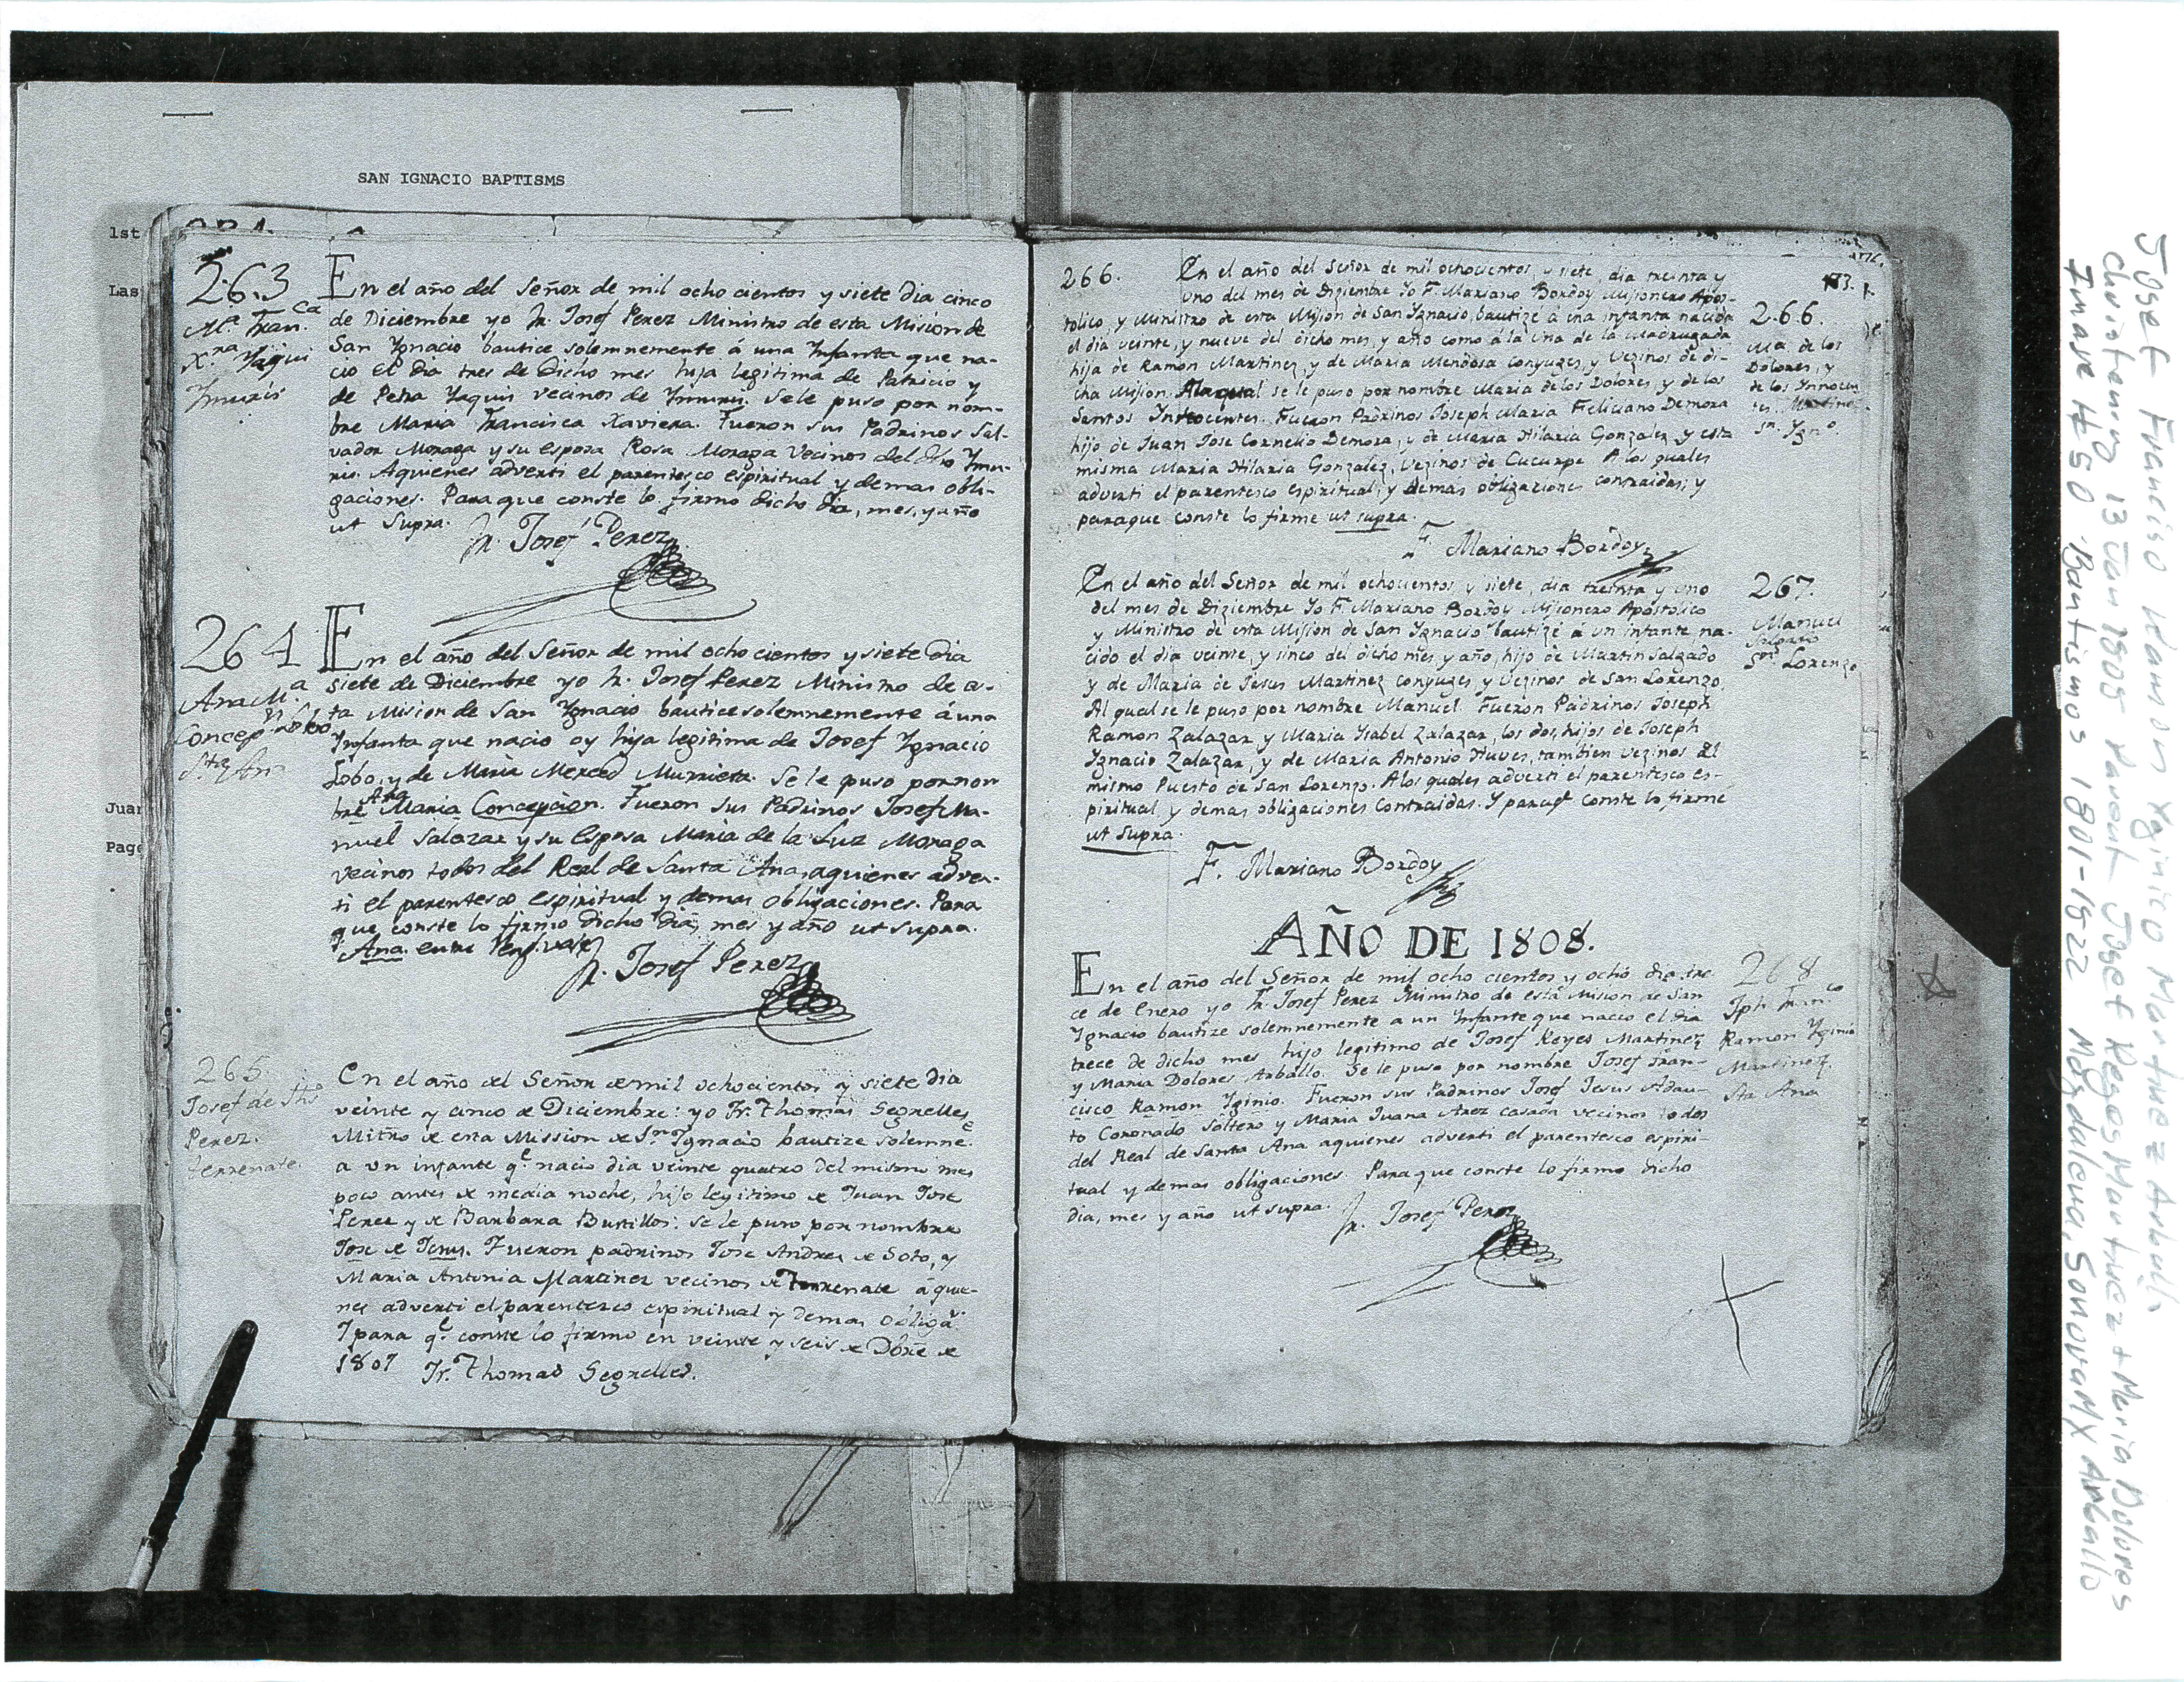 SAN IGNACIO BAPTISMS
1st
Las
Juan
Page
263
Ma. Fran.ca
X.ra Yaqui
Ymuris
En el año del Señor de mil ocho cientos y siete dia cinco
de Diciembre yo Fr. Josef Perez Ministro de esta Mision de
San Ygnacio bautice solemnemente á una Ynfanta que na-
cio el dia tres de dicho mes hija legitima de Patricio y
de Petra Yaquis vecinos de Ymuris. Sele puso por nom-
bre Maria Francisca Xaviera. Fueron sus Padrinos Sal-
vador Moraga y su esposa Rosa Moraga vecinos del dho Ymu-
ris. Aquienes adverti el parentesco espiritual y demas obli-
gaciones. Para que conste lo firmo dicho dia, mes, y año
ut supra.
Fr. Josef Perez
264
Ana M.a
Concep.n Lobo
Sta Ana
En el año del Señor de mil ocho cientos y siete dia
siete de Diciembre yo Fr. Josef Perez Ministro de es-
ta Mision de San Ygnacio bautice solemnemente á una
Ynfanta que nacio oy hija legitima de Josef Ygnacio
Lobo, y de Maria Merced Murrieta. Se le puso por nom
bre Ana Maria Concepcion. Fueron sus Padrinos Josef Ma-
nuel Salazar y su esposa Maria de la Luz Moraga
vecinos todos del Real de Santa Ana, aquienes adver-
ti el parentesco espiritual y demas obligaciones. Para
que conste lo firmo dicho dia, mes y año ut supra.
Ana. entre reng. vale
Fr. Josef Perez
265.
Josef de Jhs
Perez.
Terrenate.
En el año del Señor de mil ochocientos y siete dia
veinte y cinco de Diciembre: yo Fr. Thomas Segrelles
Mitro de esta Mission de Sn Ygnacio bautize solemne.e
a un infante q.e nacio dia veinte quatro del mismo mes
poco antes de media noche, hijo legitimo de Juan Jose
Perez y de Barbara Bustillos: se le puso por nombre
Jose de Jesus. Fueron padrinos Jose Andres de Soto, y
Maria Antonia Martinez vecinos de Terrenate á quie-
nes adverti el parentesco espiritual y demas obliga.s
Y para q.e conste lo firmo en veinte y seis de Dbre de
1807 Fr. Thomas Segrelles.
173.
266.
En el año del Señor de mil ochocientos, y siete, dia treinta y
uno del mes de Diziembre Yo F. Mariano Bordoy Misionero Apos-
tolico, y Ministro de esta Mision de San Ygnacio, bautizé á una infanta nacida
el dia veinte, y nueve del dicho mes, y año como á la una de la madrugada
hija de Ramon Martinez, y de Maria Mendosa conyuges, y vezinos de di-
cha Mision. Ala qual se le puso por nombre Maria de los Dolores, y de los
Santos Innocentes. Fueron Padrinos Joseph Maria Feliciano Demora
hijo de Juan Jose Cornelio Demora, y de Maria Hilaria Gonzalez y esta
misma Maria Hilaria Gonzalez, vezinos de Cucurpe. A los quales
adverti el parentesco espiritual, y demás obligaciones contraidas; y
paraque conste lo firme ut supra.
F. Mariano Bordoy
266.
Ma de los
Dolores, y
de los Innocen
tes. Martine
Sn. Ygn.o
En el año del Señor de mil ochocientos, y siete, dia treinta y uno
del mes de Diziembre Yo F. Mariano Bordoy Misionero Apostolico
y Ministro de esta Mision de San Ygnacio bautizé á un infante, na-
cido el dia veinte, y sinco del dicho mes, y año, hijo de Martin Salgado
y de Maria de Jesus Martinez conyuges, y vezinos de San Lorenzo.
Al qual se le puso por nombre Manuel. Fueron Padrinos Joseph
Ramon Zalazar, y Maria Ysabel Zalazar, los dos hijos de Joseph
Ygnacio Zalazar, y de Maria Antonio Nuves, tambien vezinos del
mismo Puesto de San Lorenzo. A los quales adverti el parentesco es-
piritual y demas obligaciones contraidas. Y paraq.e conste lo firmé
ut supra.
F. Mariano Bordoy
267.
Manuel
Salgado
Sn. Lorenzo
AÑO DE 1808.
En el año del Señor de mil ocho cientos y ocho dia tre
ce de Enero yo Fr. Josef Perez Ministro de esta Mision de San
Ygnacio bautize solemnemente a un Ynfante que nacio el dia
trece de dicho mes hijo legitimo de Josef Reyes Martinez
y Maria Dolores Arballo. Se le puso por nombre Josef Fran-
cisco Ramon Yginio. Fueron sus Padrinos Josef Jesus Adau-
to Coronado soltero y Maria Juana Arez casada vecinos todos
del Real de Santa Ana aquienes adverti el parentesco espiri-
tual y demas obligaciones. Para que conste lo firmo dicho
dia, mes y año ut supra.
Fr. Josef Perez
268
Jph Fran.co
Ramon Yginio
Martinez.
Sta Ana
Josef Francisco Ramon Yginito Martinez Arball.
christening 13 Jan 1805 Parent Josef Reyes Martinez + Maria Dolores
Arballo
Imase # 50 Bautismos 1801-1822 Magdalena, Sonova MX